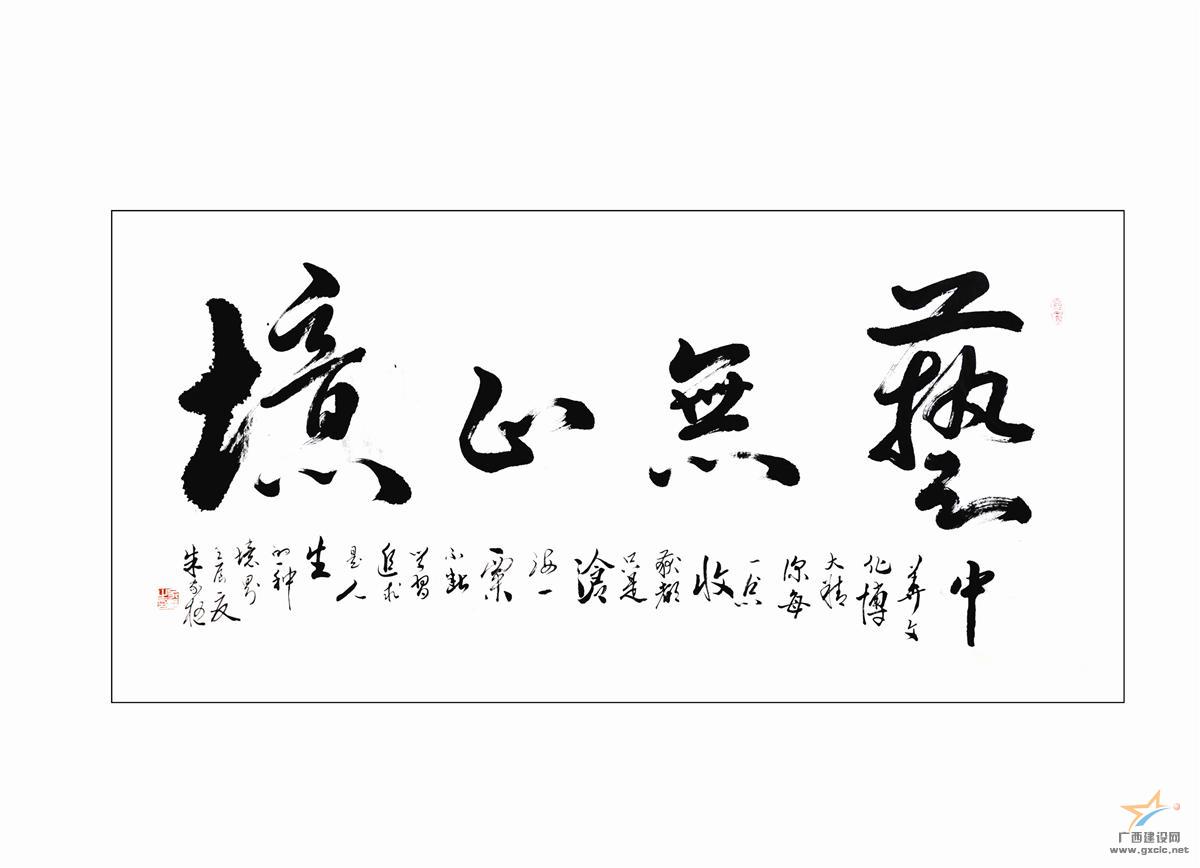 藝無止境
中
華文
化博
大精
深每
一点
收
獲都
只是
滄
海一
粟
不斷
学習
追求
是人
生
的一种
境界
壬辰夏
朱
广西建设网
www.gxcic.net